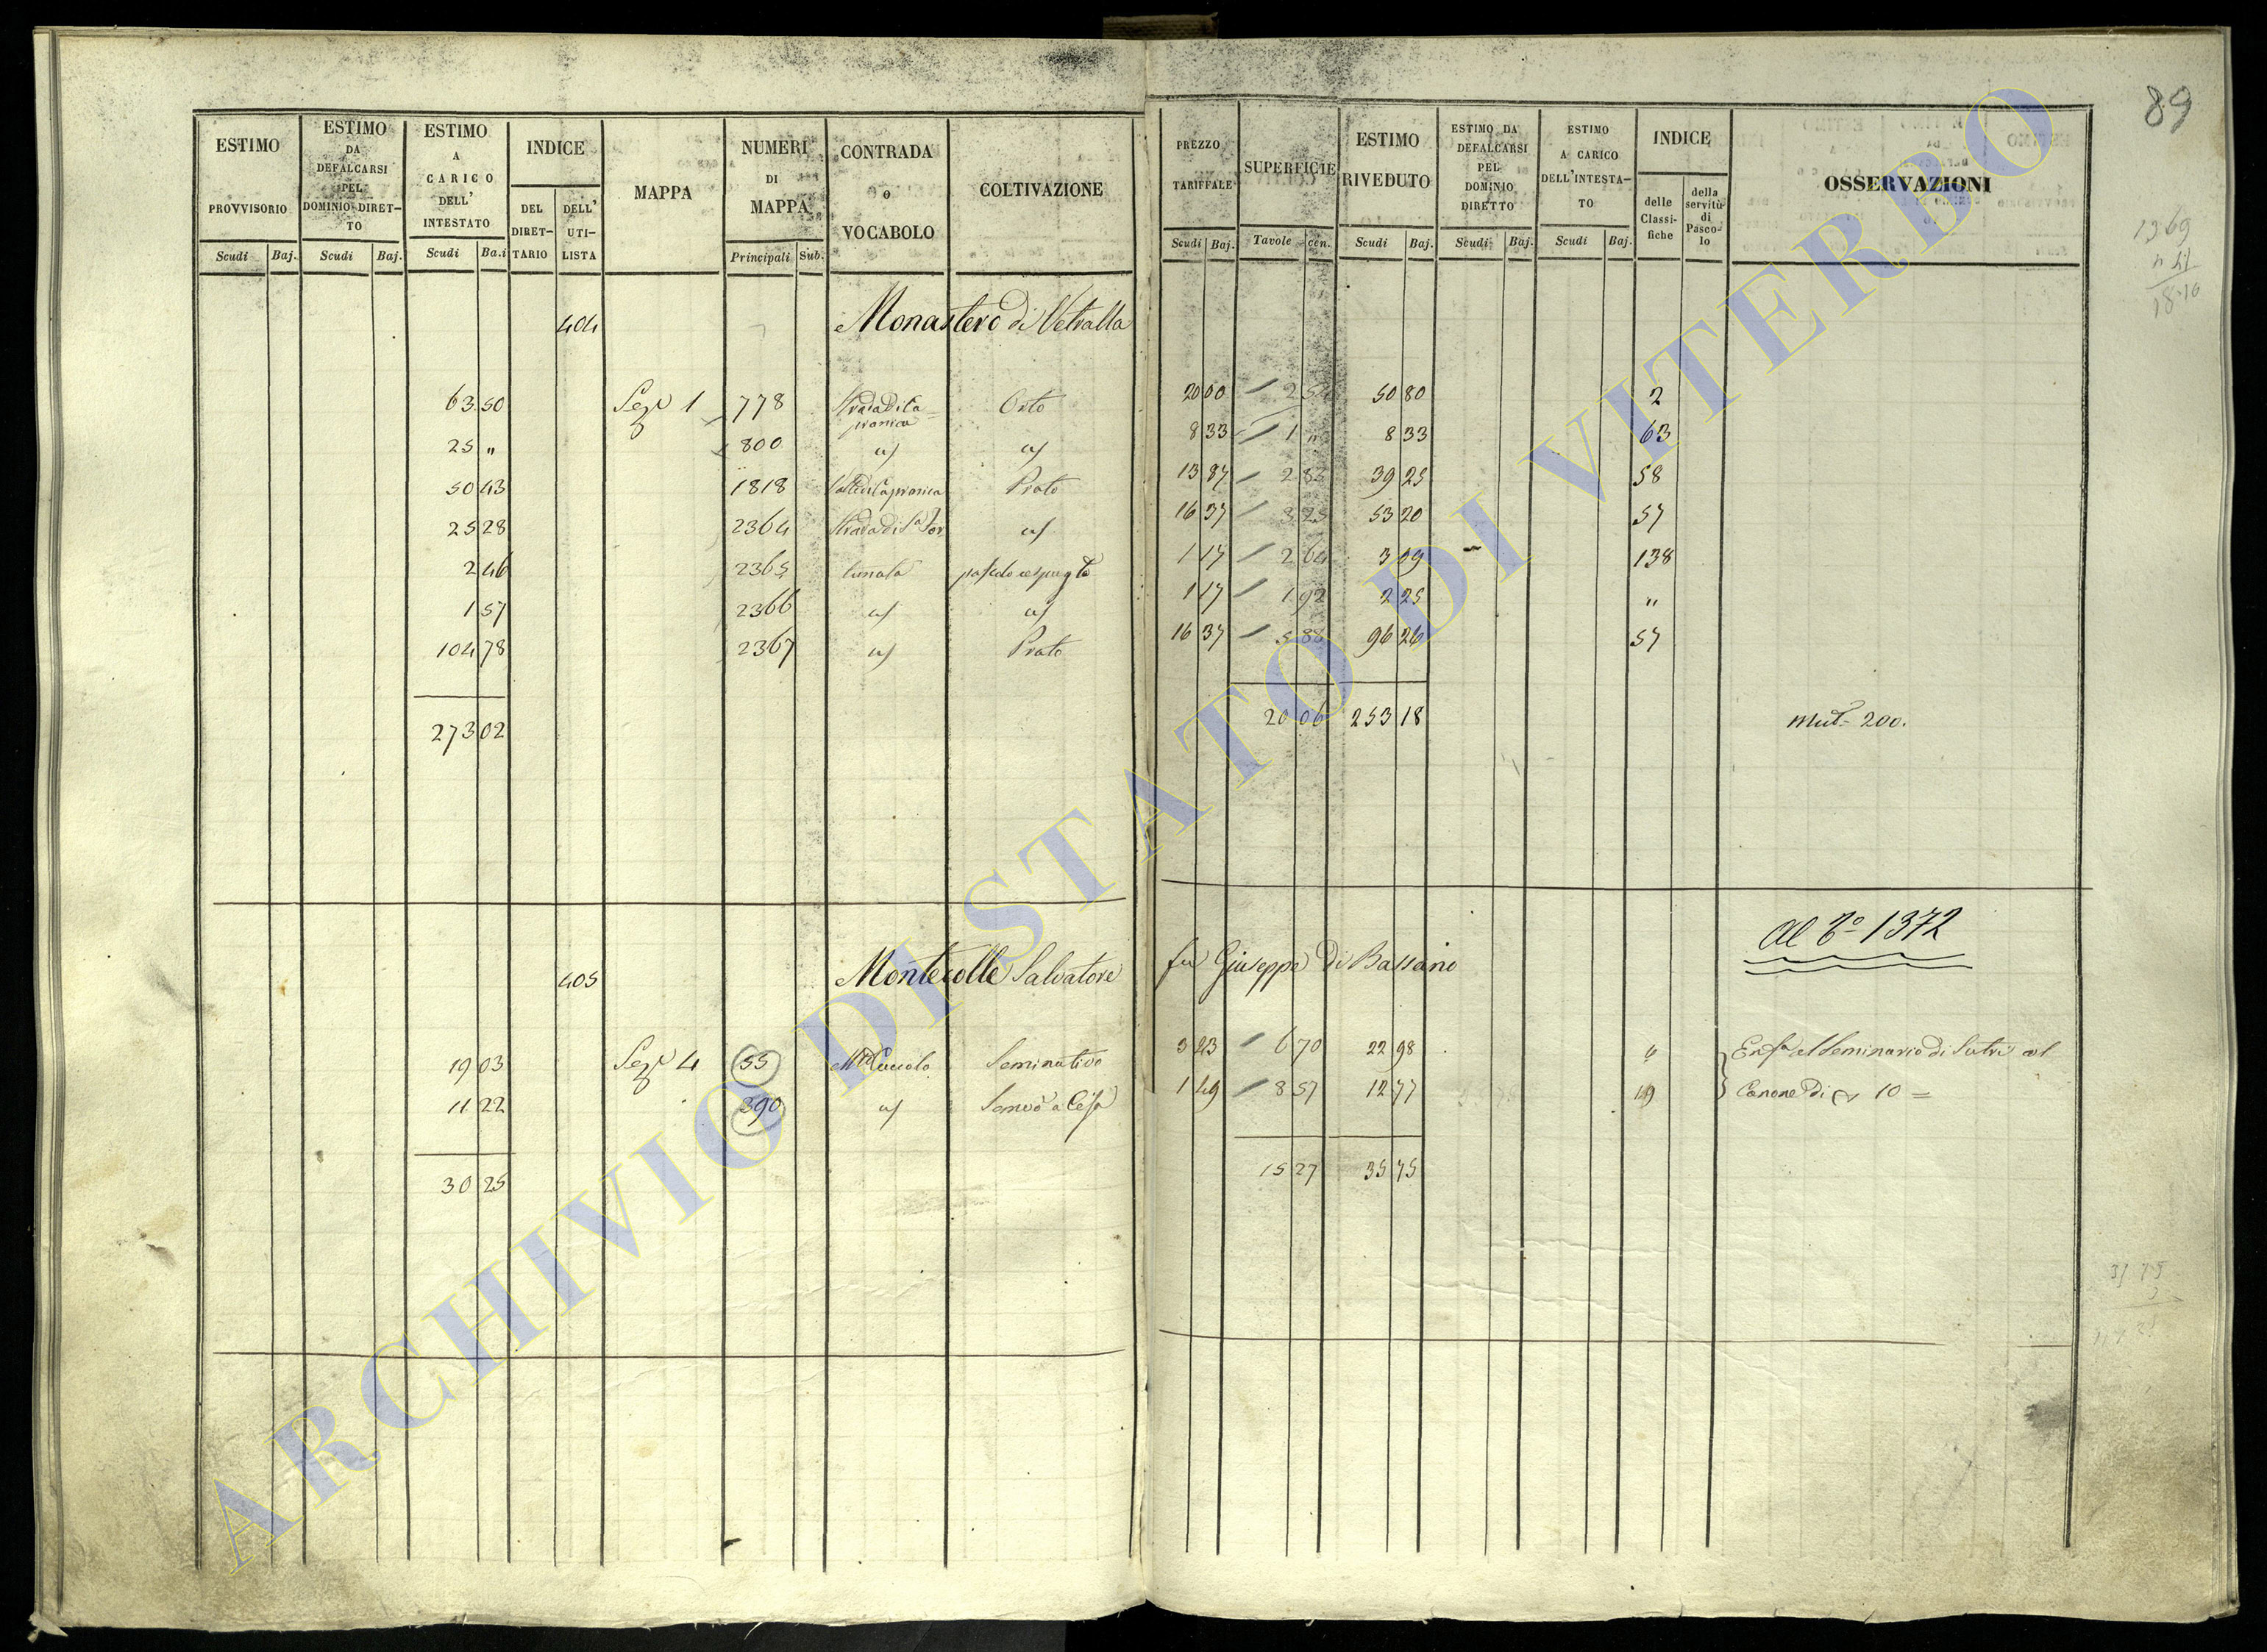 89
ESTIMO PROVVISORIO
ESTIMO DA DEFALCARSI PEL DOMINIO DIRETTO
ESTIMO A CARICO DELL' INTESTATO
INDICE
DEL DIRETTARIO
DELL' UTILISTA
MAPPA
NUMERI DI MAPPA
CONTRADA o VOCABOLO
COLTIVAZIONE
PREZZO TARIFFALE
SUPERFICIE
ESTIMO RIVEDUTO
ESTIMO DA DEFALCARSI PEL DOMINIO DIRETTO
ESTIMO A CARICO DELL'INTESTATO
INDICE
delle Classifiche
della servitù di Pascolo
OSSERVAZIONI
Scudi Baj. Scudi Baj. Scudi Ba.i Principali Sub. Scudi Baj. Tavole cen. Scudi Baj. Scudi Baj. Scudi Baj.
1369
404 Monastero di Vetralla
63 50 Seze 1 778 Orto 20 00 2 54 50 80 2
25 " 800 8 33 1 " 8 33 63
50 43 1818 Prato 13 87 2 83 39 25 58
25 28 2364 16 37 3 25 53 20 57
2 46 2365 1 17 2 64 3 09 138
1 57 2366 1 17 1 92 2 25 "
104 78 2367 Prato 16 37 5 88 96 26 57
273 02 20 06 253 18 Mut. 200.
Al 1372
405 Montecolle Salvatore fu Giuseppe di Bassano
19 03 Seze 4 55 Seminativo 3 43 6 70 22 98 Enfa al Seminario di Sutri col
11 22 390 1 49 8 57 12 77 Canone di 10 =
30 25 15 27 35 75
ARCHIVIO DI STATO DI VITERBO